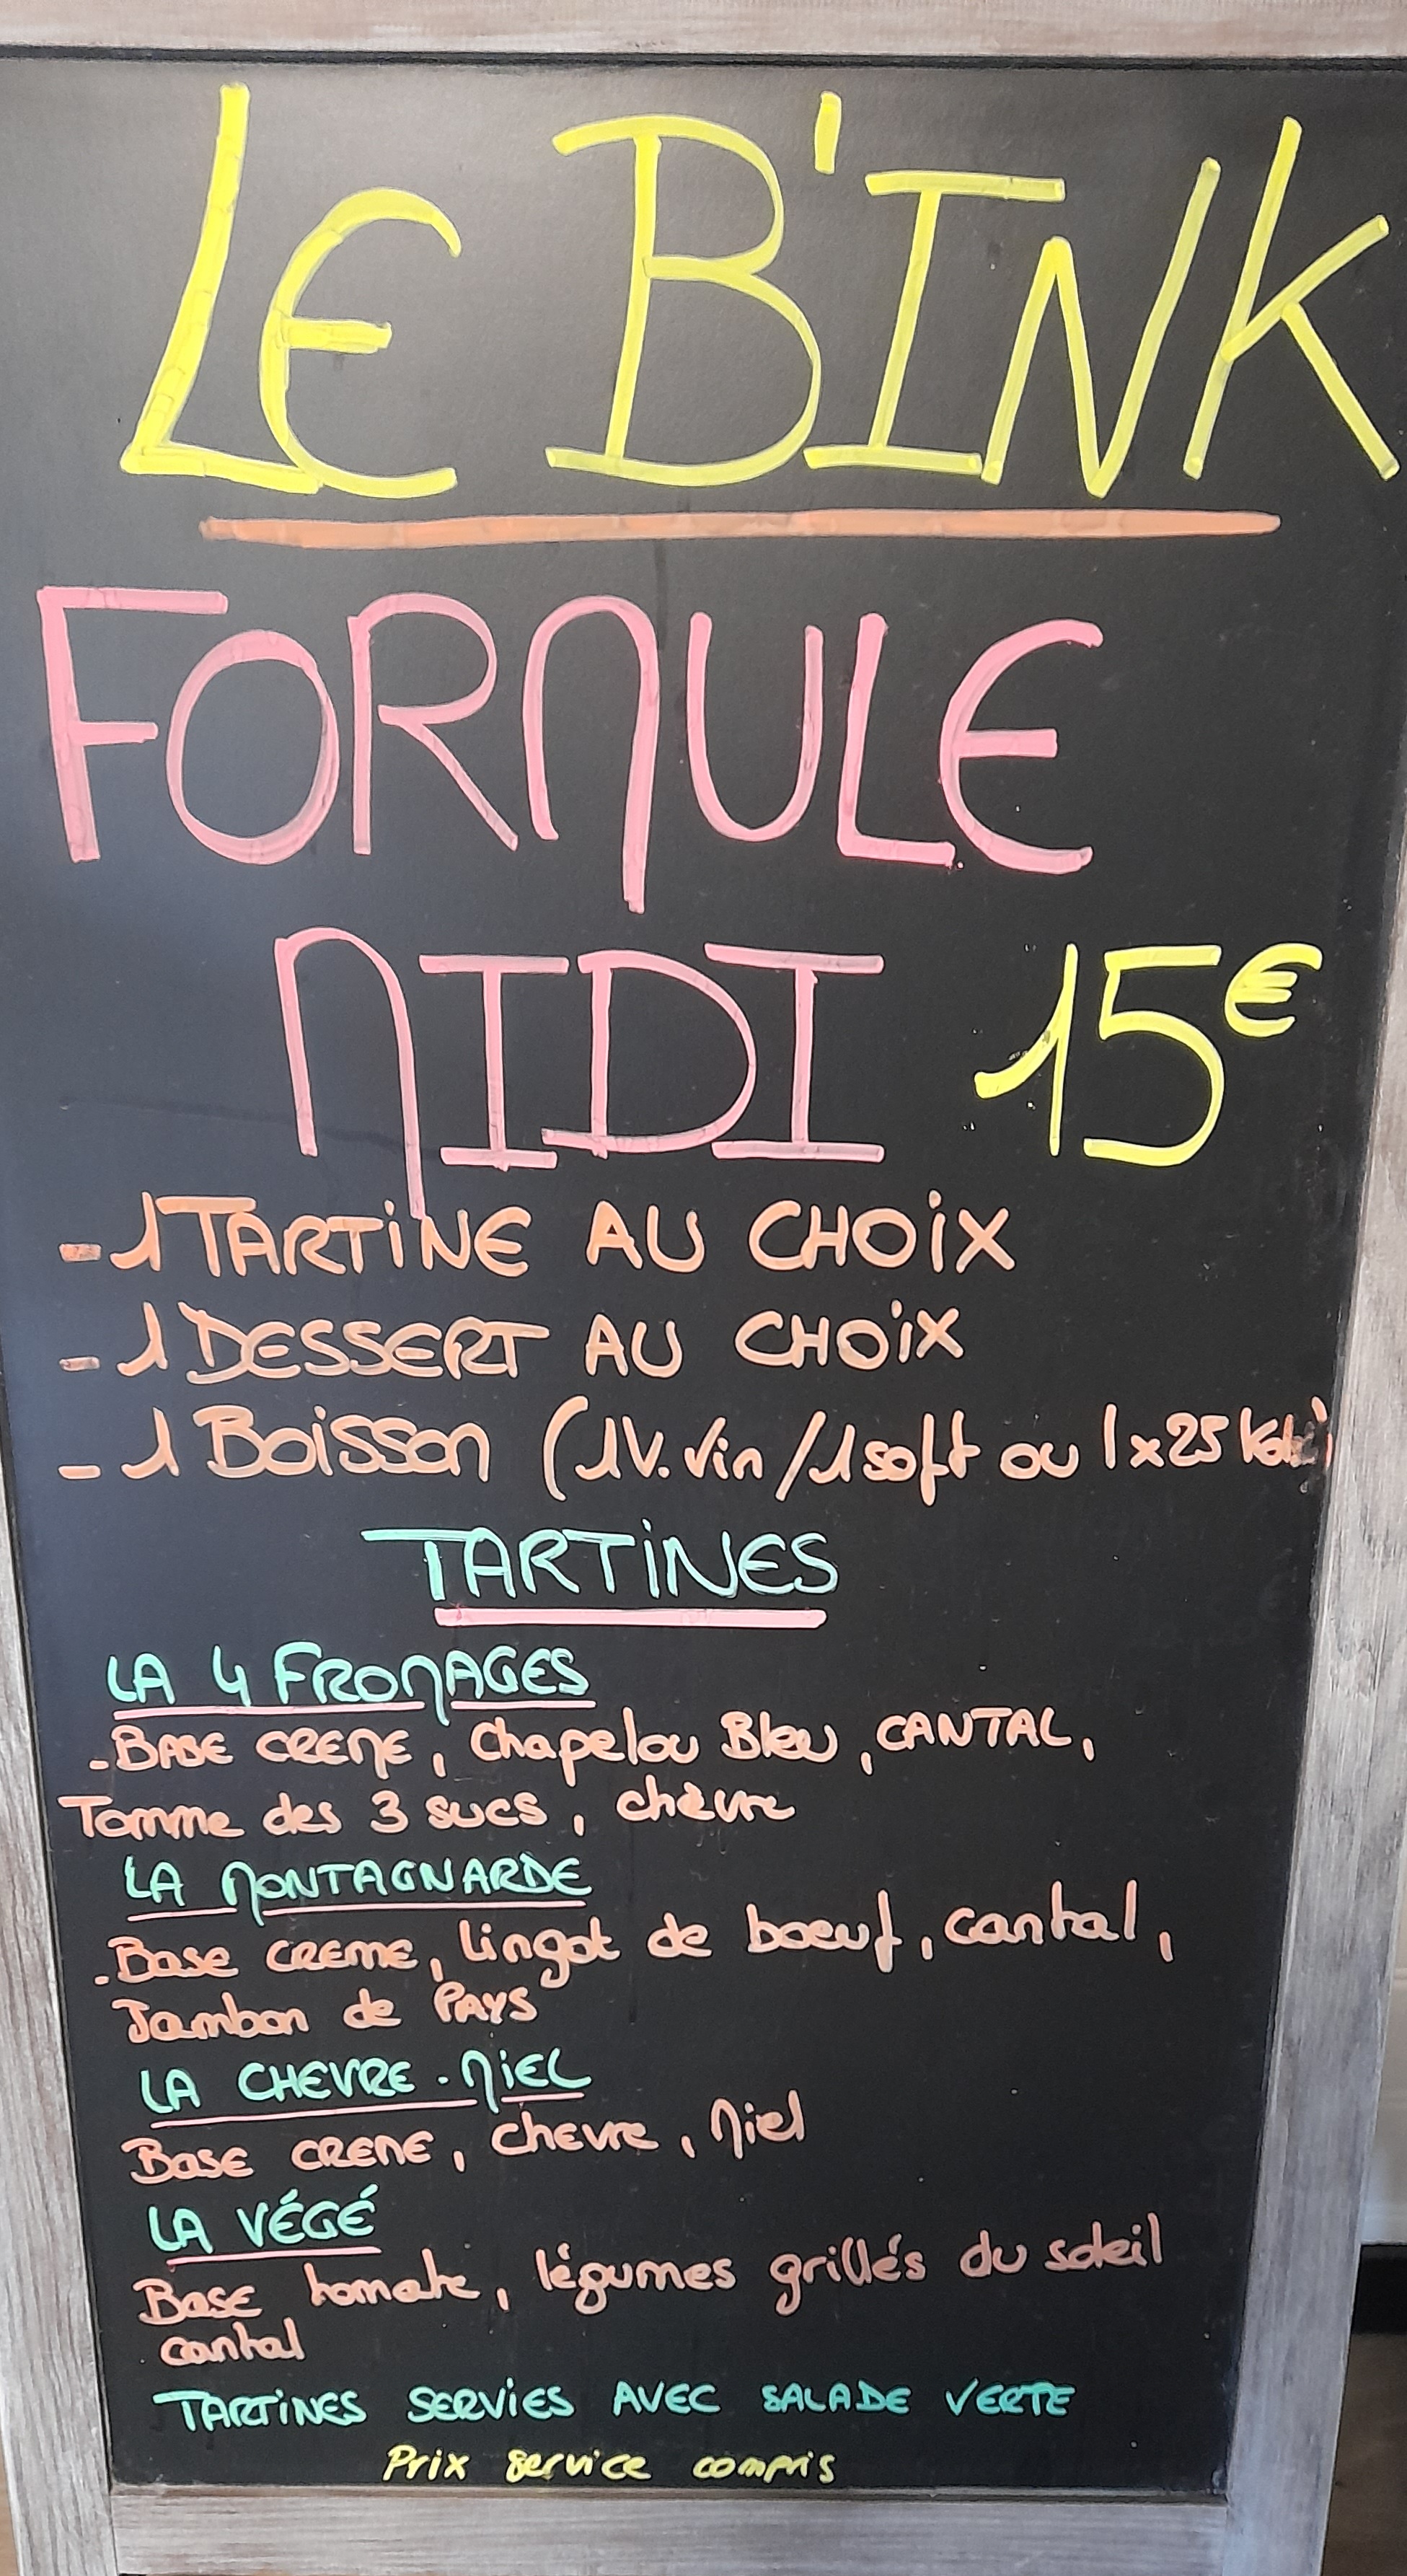 LE B'INK
FORMULE
MIDI 15€
- 1 TARTINE AU CHOIX
- 1 DESSERT AU CHOIX
- 1 Boisson (1V. Vin / 1 soft ou 1x25
TARTINES
LA 4 FROMAGES
- BASE CREME, Chapelou Bleu, CANTAL,
Tomme des 3 sucs, chèvre
LA MONTAGNARDE
- Base CREME, Lingot de boeuf, cantal,
Jambon de PAYS
LA CHEVRE-MIEL
Base CREME, chevre, Miel
LA VÉGÉ
Base tomate, légumes grillés du soleil
cantal
TARTINES SERVIES AVEC SALADE VERTE
Prix service compris